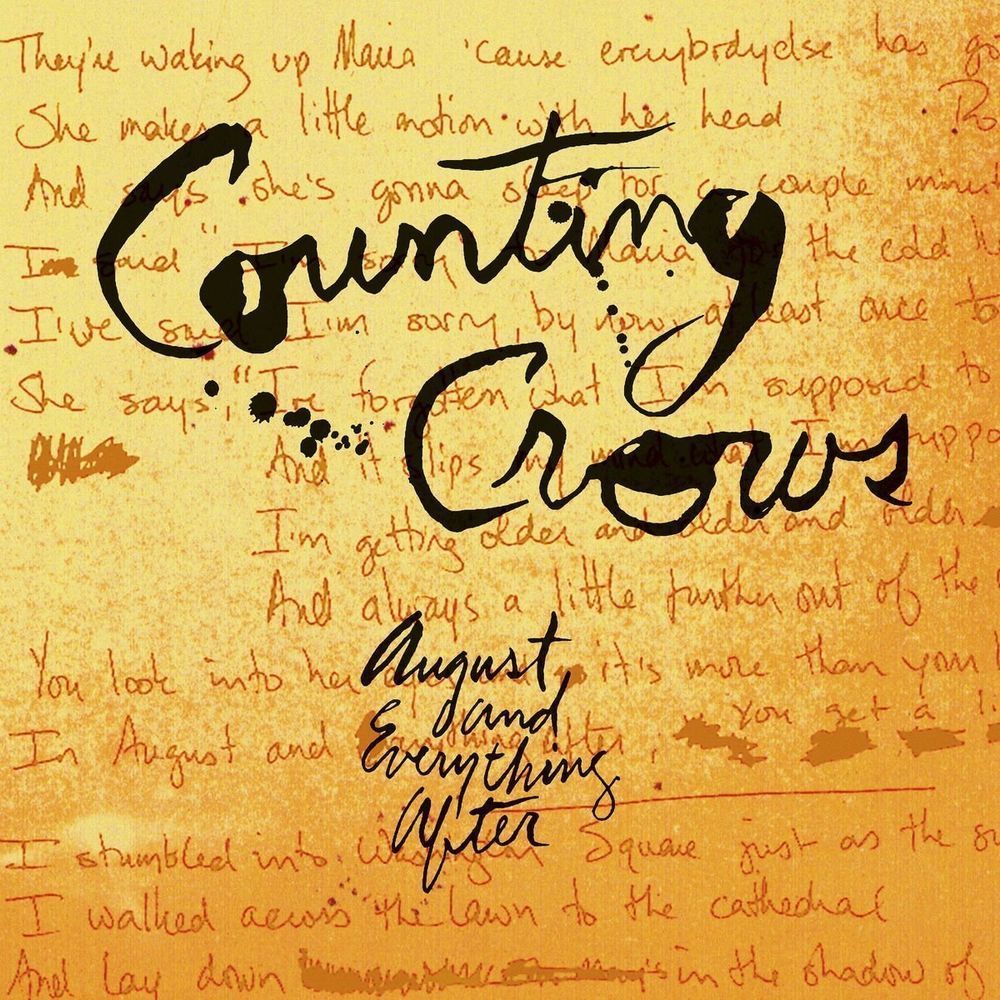 They're waking up Maria 'cause everybodyelse has go
She makes a little motion with her head
And says she's gonna sleep for a couple minut
I said "I'm sorry Maria the cold
I've said I'm sorry by now, at least once to
She says, "I've forgotten what I'm supposed to
And it slips my mind what I'm suppo
I'm getting older and older and older
And always a little further out of the
You look into her it's more than your
You get a li
In August and Everything After,
I stumbled into Washington Square just as the su
I walked across the lawn to the cathedral
And lay down in the shadow of
Counting
Crows
August
and
Everything
After